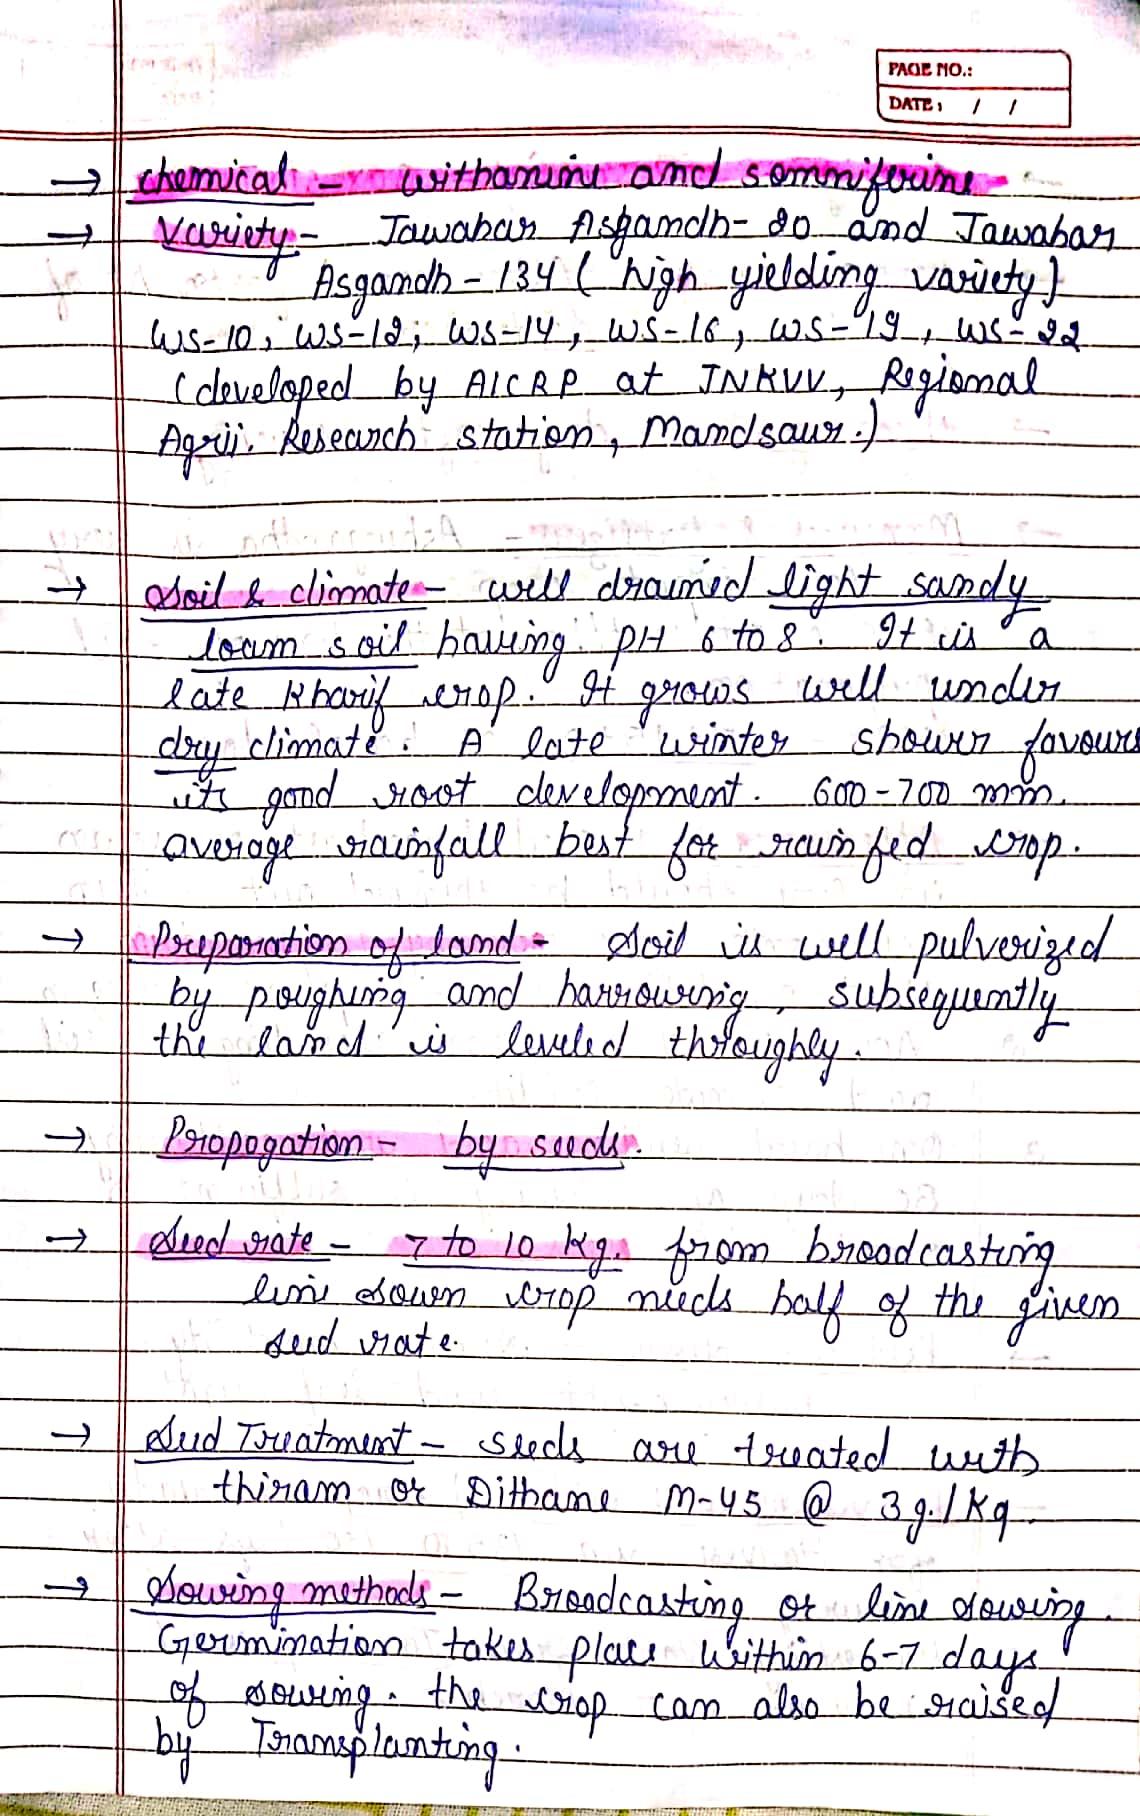 PAGE NO.:
DATE: / /
→ chemical - withanine and somniferine
→ Variety - Jawahar Asgandh-20 and Jawahar
Asgandh - 134 ( high yielding variety)
WS-10, WS-12, WS-14, WS-16, WS-19, WS-22
(developed by AICRP at JNKVV, Regional
Agri. Research station, Mandsaur.)
→ Soil & climate - well drained light sandy
loam soil having pH 6 to 8. It is a
late Kharif crop. It grows well under
dry climate. A late winter shower favours
its good root development. 600-700 mm.
average rainfall best for rainfed crop.
→ Preparation of land - Soil is well pulverized
by poughing and harrowing, subsequently
the land is leveled throughly.
→ Propogation - by seeds.
→ Seed rate - 7 to 10 kg. from broadcasting
line sown crop needs half of the given
seed rate.
→ Seed Treatment - seeds are treated with
thiram or Dithane M-45 @ 3g./kg.
→ Sowing methods - Broadcasting or line sowing.
Germination takes place within 6-7 days
of sowing. the crop can also be raised
by Transplanting.